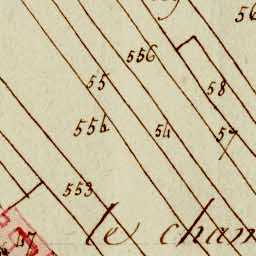 56
556
55
58
554
54
57
553
le cham
47